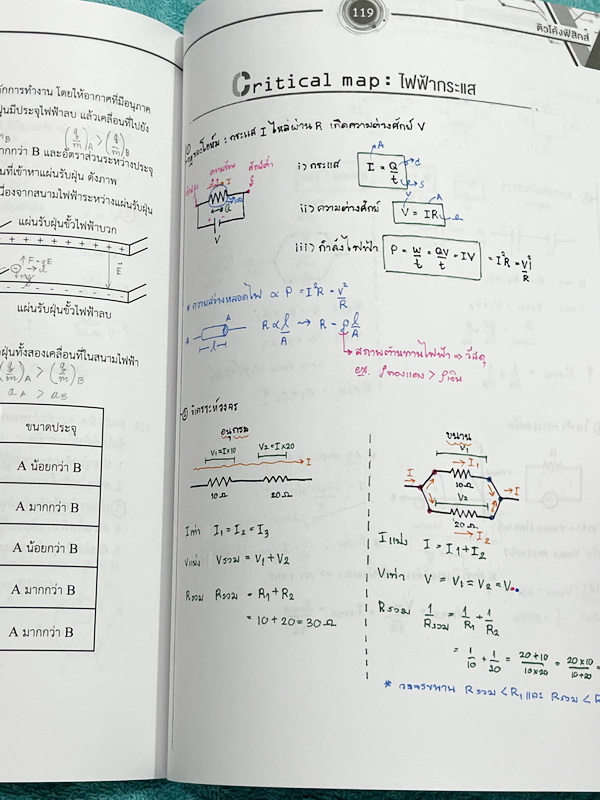 ักการทำงาน โดยให้อากาศที่มีอนุภาค
ฝุ่นมีประจุไฟฟ้าลบ แล้วเคลื่อนที่ไปยัง
ากกว่า B และอัตราส่วนระหว่างประจุ
นที่เข้าหาแผ่นรับฝุ่น ดังภาพ
เนื่องจากสนามไฟฟ้าระหว่างแผ่นรับฝุ่น
แผ่นรับฝุ่นขั้วไฟฟ้าบวก
+ + + + + +
F = qE
E
mg
แผ่นรับฝุ่นขั้วไฟฟ้าลบ
ฝุ่นทั้งสองเคลื่อนที่ในสนามไฟฟ้า
(q/m)A > (q/m)B
aA > aB
ขนาดประจุ
A น้อยกว่า B
A มากกว่า B
A น้อยกว่า B
A มากกว่า B
A มากกว่า B
119
ติวโค้งฟิสิกส์
Critical map : ไฟฟ้ากระแส
กฎของโอห์ม : กระแส I ไหลผ่าน R เกิดความต่างศักย์ V
i) กระแส I = Q/t
ii) ความต่างศักย์ V = IR
iii) กำลังไฟฟ้า P = W/t = QV/t = IV = I²R = V²/R
* ความสว่างหลอดไฟ ∝ P = I²R = V²/R
R ∝ l/A → R = ρl/A
สภาพต้านทานไฟฟ้า ⇒ วัสดุ
ex. ρทองแดง > ρเงิน
② วิเคราะห์วงจร
อนุกรม
V₁=I×10 V₂=I×20
I
10Ω 20Ω
Iเท่า I₁ = I₂ = I₃
Vแบ่ง Vรวม = V₁ + V₂
Rรวม Rรวม = R₁ + R₂
= 10 + 20 = 30 Ω
ขนาน
V₁
I → I₁
10Ω
V₂
20Ω
→ I₂
Iแบ่ง I = I₁ + I₂
Vเท่า V = V₁ = V₂ = V
Rรวม 1/Rรวม = 1/R₁ + 1/R₂
= 1/10 + 1/20 = 20+10/10×20 = 20×10/10+20 =
* วงจรขนาน Rรวม < R₁ และ Rรวม < R